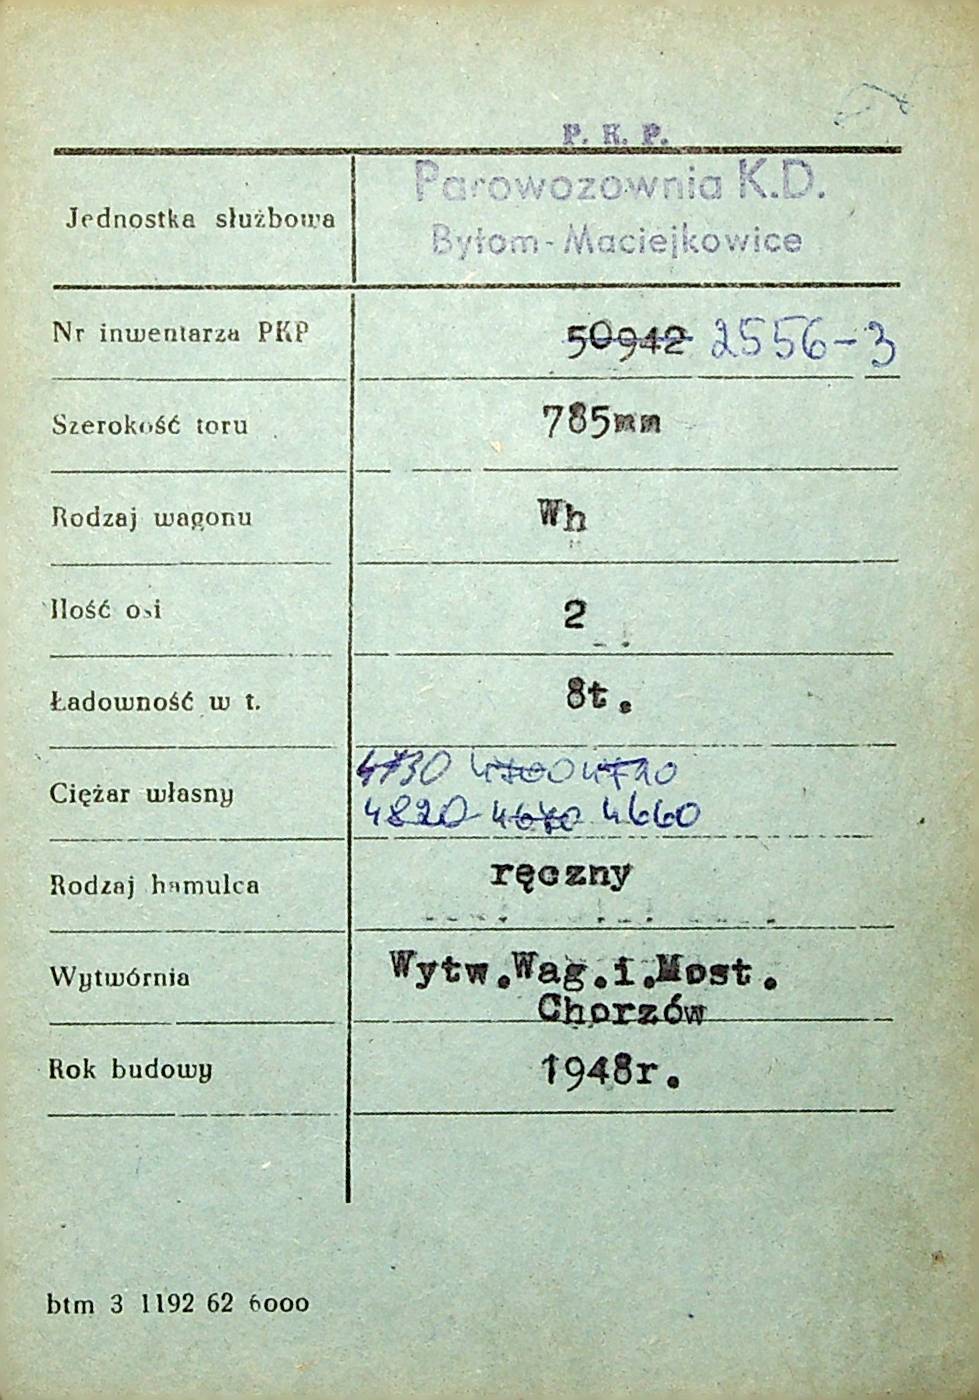 P. K. P.
Jednostka służbowa Parowozownia K.D.
Bytom-Maciejkowice
Nr inwentarza PKP 50942 2556-3
Szerokość toru 785mm
Rodzaj wagonu Wh
Ilość osi 2
Ładowność w t. 8t.
Ciężar własny 4730 4700 4720
4820 4640 4660
Rodzaj hamulca ręczny
Wytwórnia Wytw.Wag.i.Most.
Chorzów
Rok budowy 1948r.
btm 3 1192 62 6000